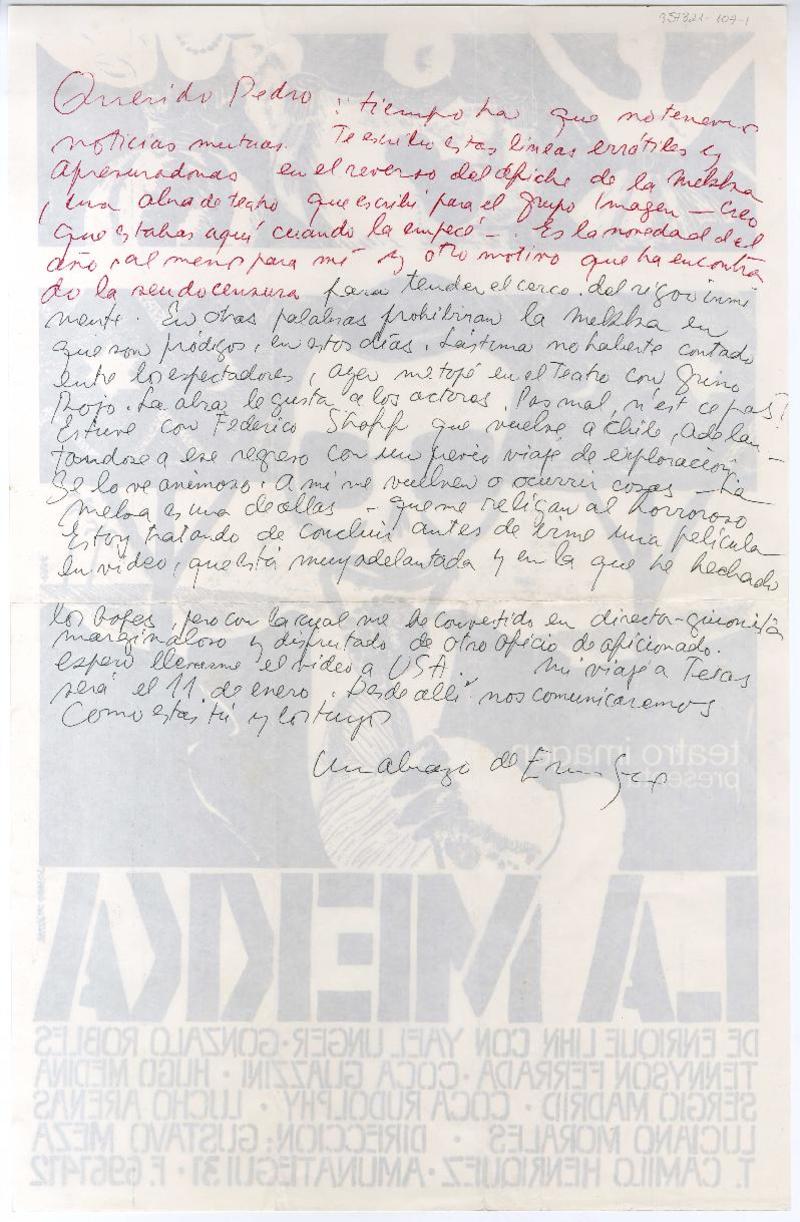 957822-107-1
Querido Pedro: tiempo ha que no tenemos
noticias mutuas. Te escribo estas líneas errátiles y
apresuradonas en el reverso del afiche de la mekka
, una obra de teatro que escribí para el grupo Imagen — creo
que estabas aquí cuando la empecé —. Es la novedad del
año, al menos para mí y otro motivo que ha encontra
do la seudocensura para tender el cerco. del rigor inmi
nente. En otras palabras prohibiran la mekka en
que son pródigos, en estos días. Lástima no haberte contado
entre los espectadores, ayer me topé en el Teatro con Grino
Rojo. La obra le gusta a los actores. Pas mal, n'est ce pas?
Estuve con Federico Shopf que vuelve a Chile, adelan-
tandose a ese regreso con un previo viaje de exploración
Se lo ve animoso. A mi me vuelven a ocurrir cosas — La
meka es una de ellas — que me religan al horroroso
Estoy tratando de concluir antes de irme una película
en video, que está muy adelantada y en la que he hechado
los bofes, pero con la cual me he convertido en director-guionista
marginaloso y disfrutado de otro oficio de aficionado.
espero llevarme el video a USA. mi viaje a Texas
será el 11 de enero. Desde allí nos comunicaremos
Como estás tú y los tuyos
Un abrazo de Enrique
teatro imagen
presenta
LA MEKKA
DE ENRIQUE LIHN CON YAEL UNGER·GONZALO ROBLES
TENNYSON FERRADA·COCA GUAZZINI · HUGO MEDINA
SERGIO MADRID · COCA RUDOLPHY · LUCHO ARENAS
LUCIANO MORALES · DIRECCION: GUSTAVO MEZA
T. CAMILO HENRIQUEZ·AMUNATEGUI 31·F. 6961412